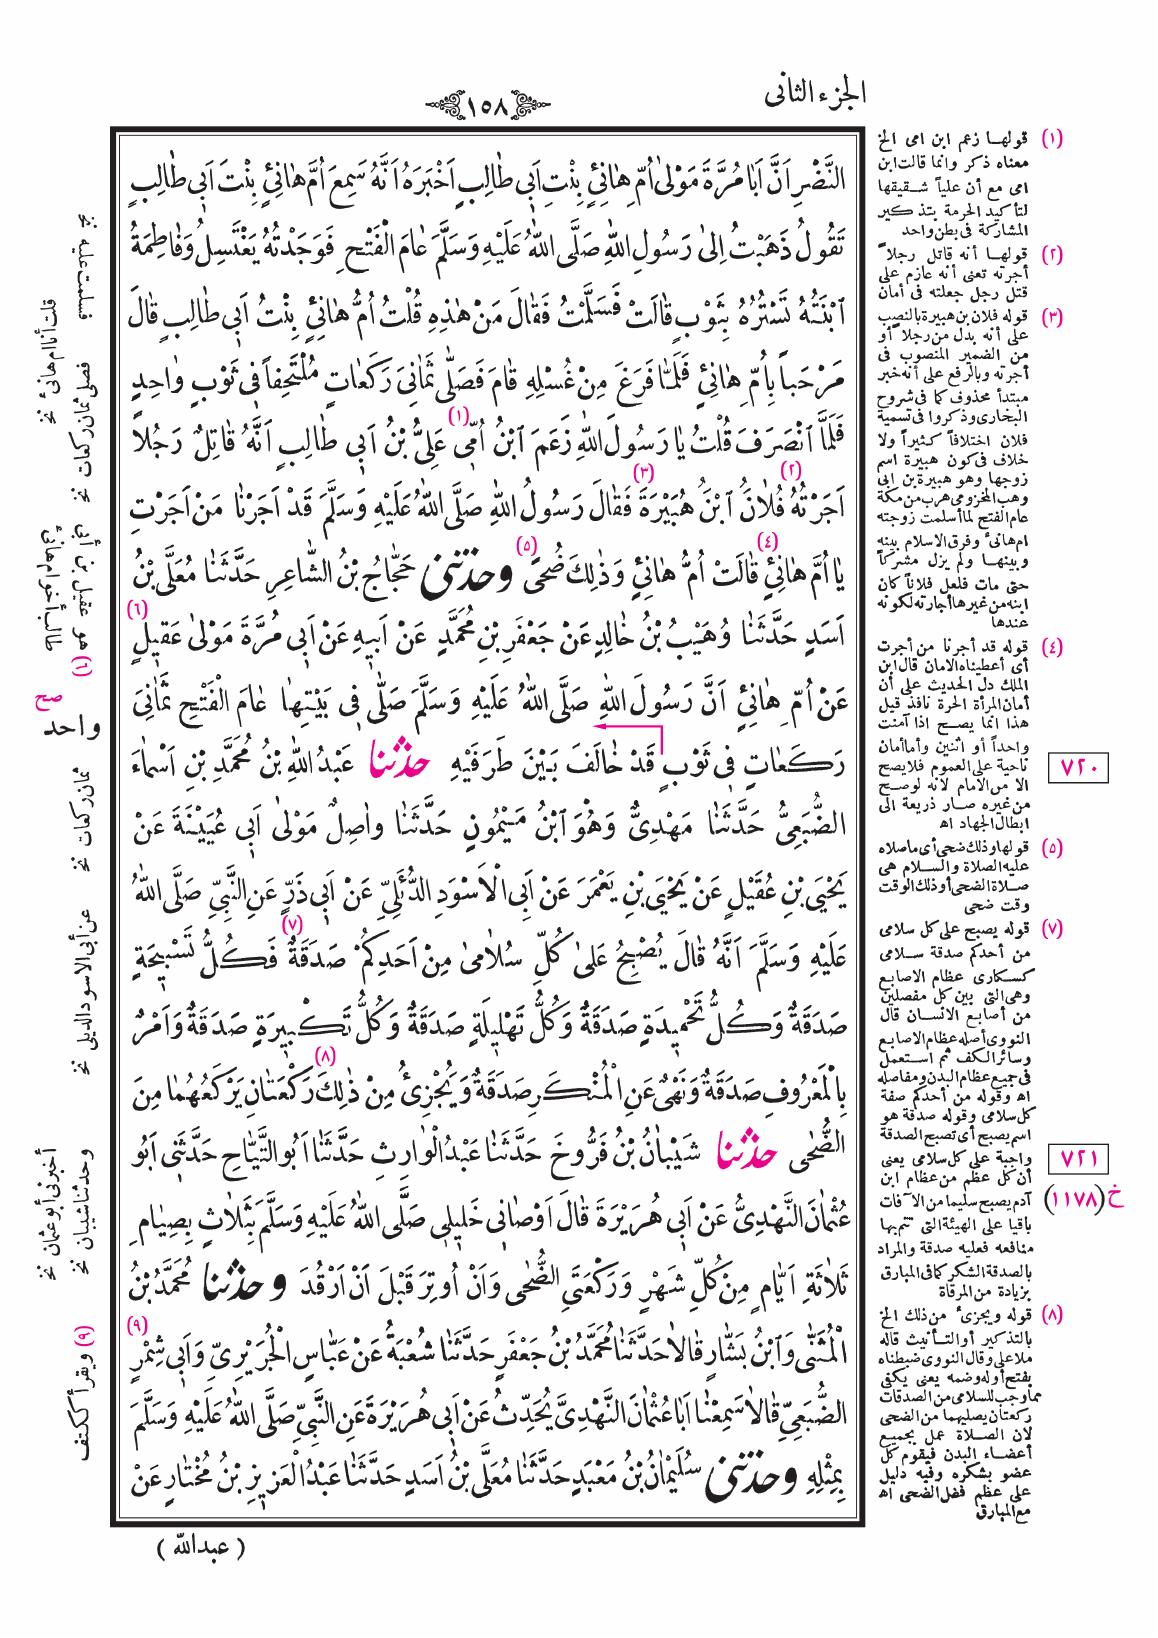 الجزء الثانى
١٥٨
النَّضْرِ اَنَّ اَبَا مُرَّةَ مَوْلىٰ اُمِّ هانِئٍ بِنْتِ اَبى طالِبٍ اَخْبَرَهُ اَنَّهُ سَمِعَ اُمَّ هانِئٍ بِنْتَ اَبى طالِبٍ
تَقُولُ ذَهَبْتُ اِلىٰ رَسُولِ اللهِ صَلَّى اللهُ عَلَيْهِ وَسَلَّمَ عامَ الْفَتْحِ فَوَجَدْتُهُ يَغْتَسِلُ وَفاطِمَةُ
ابْنَتُهُ تَسْتُرُهُ بِثَوْبٍ قالَتْ فَسَلَّمْتُ فَقالَ مَنْ هٰذِهِ قُلْتُ اُمُّ هانِئٍ بِنْتُ اَبى طالِبٍ قالَ
مَرْحَباً بِاُمِّ هانِئٍ فَلَمَّا فَرَغَ مِنْ غُسْلِهِ قامَ فَصَلّٰى ثَمانِىَ رَكَعاتٍ مُلْتَحِفاً فى ثَوْبٍ واحِدٍ
فَلَمَّا انْصَرَفَ قُلْتُ يا رَسُولَ اللهِ زَعَمَ ابْنُ اُمّى (١) عَلِىُّ بْنُ اَبى طالِبٍ اَنَّهُ قاتِلٌ رَجُلاً
اَجَرْتُهُ (٢) فُلانُ ابْنُ هُبَيْرَةَ (٣) فَقالَ رَسُولُ اللهِ صَلَّى اللهُ عَلَيْهِ وَسَلَّمَ قَدْ اَجَرْنا مَنْ اَجَرْتِ
يا اُمَّ هانِئٍ (٤) قالَتْ اُمُّ هانِئٍ وَذٰلِكَ ضُحًى (٥) وحدثنى حَجّاجُ بْنُ الشّاعِرِ حَدَّثَنا مُعَلَّى بْنُ
اَسَدٍ حَدَّثَنا وُهَيْبُ بْنُ خالِدٍ عَنْ جَعْفَرِ بْنِ مُحَمَّدٍ عَنْ اَبيهِ عَنْ اَبى مُرَّةَ مَوْلىٰ عَقيلٍ (٦)
عَنْ اُمِّ هانِئٍ اَنَّ رَسُولَ اللهِ صَلَّى اللهُ عَلَيْهِ وَسَلَّمَ صَلّٰى فى بَيْتِها عامَ الْفَتْحِ ثَمانِىَ
رَكَعاتٍ فى ثَوْبٍ قَدْ خالَفَ بَيْنَ طَرَفَيْهِ حدثنا عَبْدُ اللهِ بْنُ مُحَمَّدِ بْنِ اَسْماءَ
الضُّبَعِىُّ حَدَّثَنا مَهْدِىٌّ وَهُوَ ابْنُ مَيْمُونٍ حَدَّثَنا واصِلٌ مَوْلىٰ اَبى عُيَيْنَةَ عَنْ
يَحْيَى بْنِ عُقَيْلٍ عَنْ يَحْيَى بْنِ يَعْمَرَ عَنْ اَبِى الْاَسْوَدِ الدُّئَلِىِّ عَنْ اَبى ذَرٍّ عَنِ النَّبِىِّ صَلَّى اللهُ
عَلَيْهِ وَسَلَّمَ اَنَّهُ قالَ يُصْبِحُ عَلىٰ كُلِّ سُلامىٰ مِنْ اَحَدِكُمْ صَدَقَةٌ (٧) فَكُلُّ تَسْبيحَةٍ
صَدَقَةٌ وَكُلُّ تَحْميدَةٍ صَدَقَةٌ وَكُلُّ تَهْليلَةٍ صَدَقَةٌ وَكُلُّ تَكْبيرَةٍ صَدَقَةٌ وَاَمْرٌ
بِالْمَعْرُوفِ صَدَقَةٌ وَنَهْىٌ عَنِ الْمُنْكَرِ صَدَقَةٌ وَيُجْزِئُ مِنْ ذٰلِكَ (٨) رَكْعَتانِ يَرْكَعُهُما مِنَ
الضُّحٰى حدثنا شَيْبانُ بْنُ فَرُّوخَ حَدَّثَنا عَبْدُ الْوارِثِ حَدَّثَنا اَبُو التَّيّاحِ حَدَّثَنى اَبُو
عُثْمانَ النَّهْدِىُّ عَنْ اَبى هُرَيْرَةَ قالَ اَوْصانى خَليلى صَلَّى اللهُ عَلَيْهِ وَسَلَّمَ بِثَلاثٍ بِصِيامِ
ثَلاثَةِ اَيّامٍ مِنْ كُلِّ شَهْرٍ وَرَكْعَتَىِ الضُّحٰى وَاَنْ اُوتِرَ قَبْلَ اَنْ اَرْقُدَ وحدثنا مُحَمَّدُ بْنُ
الْمُثَنّٰى وَابْنُ بَشّارٍ قالا حَدَّثَنا مُحَمَّدُ بْنُ جَعْفَرٍ حَدَّثَنا شُعْبَةُ عَنْ عَبّاسٍ الْجُرَيْرِىِّ وَاَبى شِمْرٍ (٩)
الضُّبَعِىِّ قالا سَمِعْنا اَبا عُثْمانَ النَّهْدِىَّ يُحَدِّثُ عَنْ اَبى هُرَيْرَةَ عَنِ النَّبِىِّ صَلَّى اللهُ عَلَيْهِ وَسَلَّمَ
بِمِثْلِهِ وحدثنى سُلَيْمانُ بْنُ مَعْبَدٍ حَدَّثَنا مُعَلَّى بْنُ اَسَدٍ حَدَّثَنا عَبْدُ الْعَزيزِ بْنُ مُخْتارٍ عَنْ
( عبدالله )
(١) قولها زعم ابن امى الخ
معناه ذكر وانما قالت ابن
امى مع أن علياً شقيقها
لتأكيد الحرمة بتذكير
المشاركة فى بطن واحد
(٢) قولها أنه قاتل رجلاً
أجرته تعنى أنه عازم على
قتل رجل جعلته فى أمان
(٣) قوله فلان بن هبيرة بالنصب
على أنه بدل من رجلاً أو
من الضمير المنصوب فى
أجرته وبالرفع على أنه خبر
مبتدأ محذوف كما فى شروح
البخارى وذكروا فى تسمية
فلان اختلافاً كثيراً ولا
خلاف فى كون هبيرة اسم
زوجها وهو هبيرة بن ابى
وهب المخزومى هرب من مكة
عام الفتح لما أسلمت زوجته
ام هانئ وفرق الاسلام بينه
وبينها ولم يزل مشركاً
حتى مات فلعل فلاناً كان
ابنه من غيرها أجارته لكونه
عندها
(٤) قوله قد أجرنا من أجرت
أى أعطيناه الامان قال ابن
الملك دل الحديث على أن
أمان المرأة الحرة نافذ قيل
هذا انما يصح اذا آمنت
واحداً أو اثنين وأما أمان
ناحية على العموم فلا يصح
الا من الامام لانه لو صح
من غيره صار ذريعة الى
ابطال الجهاد اه
(٥) قولها وذلك ضحى أى ما صلاه
عليه الصلاة والسلام هى
صلاة الضحى أو ذلك الوقت
وقت ضحى
(٧) قوله يصبح على كل سلامى
من أحدكم صدقة سلامى
كسكارى عظام الاصابع
وهى التى بين كل مفصلين
من أصابع الانسان قال
النووى أصله عظام الاصابع
وسائر الكف ثم استعمل
فى جميع عظام البدن ومفاصله
اه وقوله من أحدكم صفة
كل سلامى وقوله صدقة هو
اسم يصبح أى تصبح الصدقة
واجبة على كل سلامى يعنى
أن كل عظم من عظام ابن
آدم يصبح سليما من الآفات
باقيا على الهيئة التى تتم بها
منافعه فعليه صدقة والمراد
بالصدقة الشكر كما فى المبارق
بزيادة من المرقاة
(٨) قوله ويجزئ من ذلك الخ
بالتذكير أو التأنيث قاله
ملا على وقال النووى ضبطناه
بفتح أوله وضمه يعنى يكفى
مما وجب للسلامى من الصدقات
ركعتان يصليهما من الضحى
لان الصلاة عمل بجميع
أعضاء البدن فيقوم كل
عضو بشكره وفيه دليل
على عظم فضل الضحى اه
مع المبارق
٧٢٠
٧٢١
خ (١١٧٨)
فسلمت عليه نخ
قلت أنا ام هانئ نخ
فصلى ثمان ركعات نخ
(٦) هو عقيل بن أبى
طالب أخو ام هانئ
صح
واحد
ثمان ركعات نخ
عن أبى الاسود الديلى نخ
وحدثنا شيبان نخ
أخبرنى أبو عثمان نخ
(٩) ويقرأ ككتف